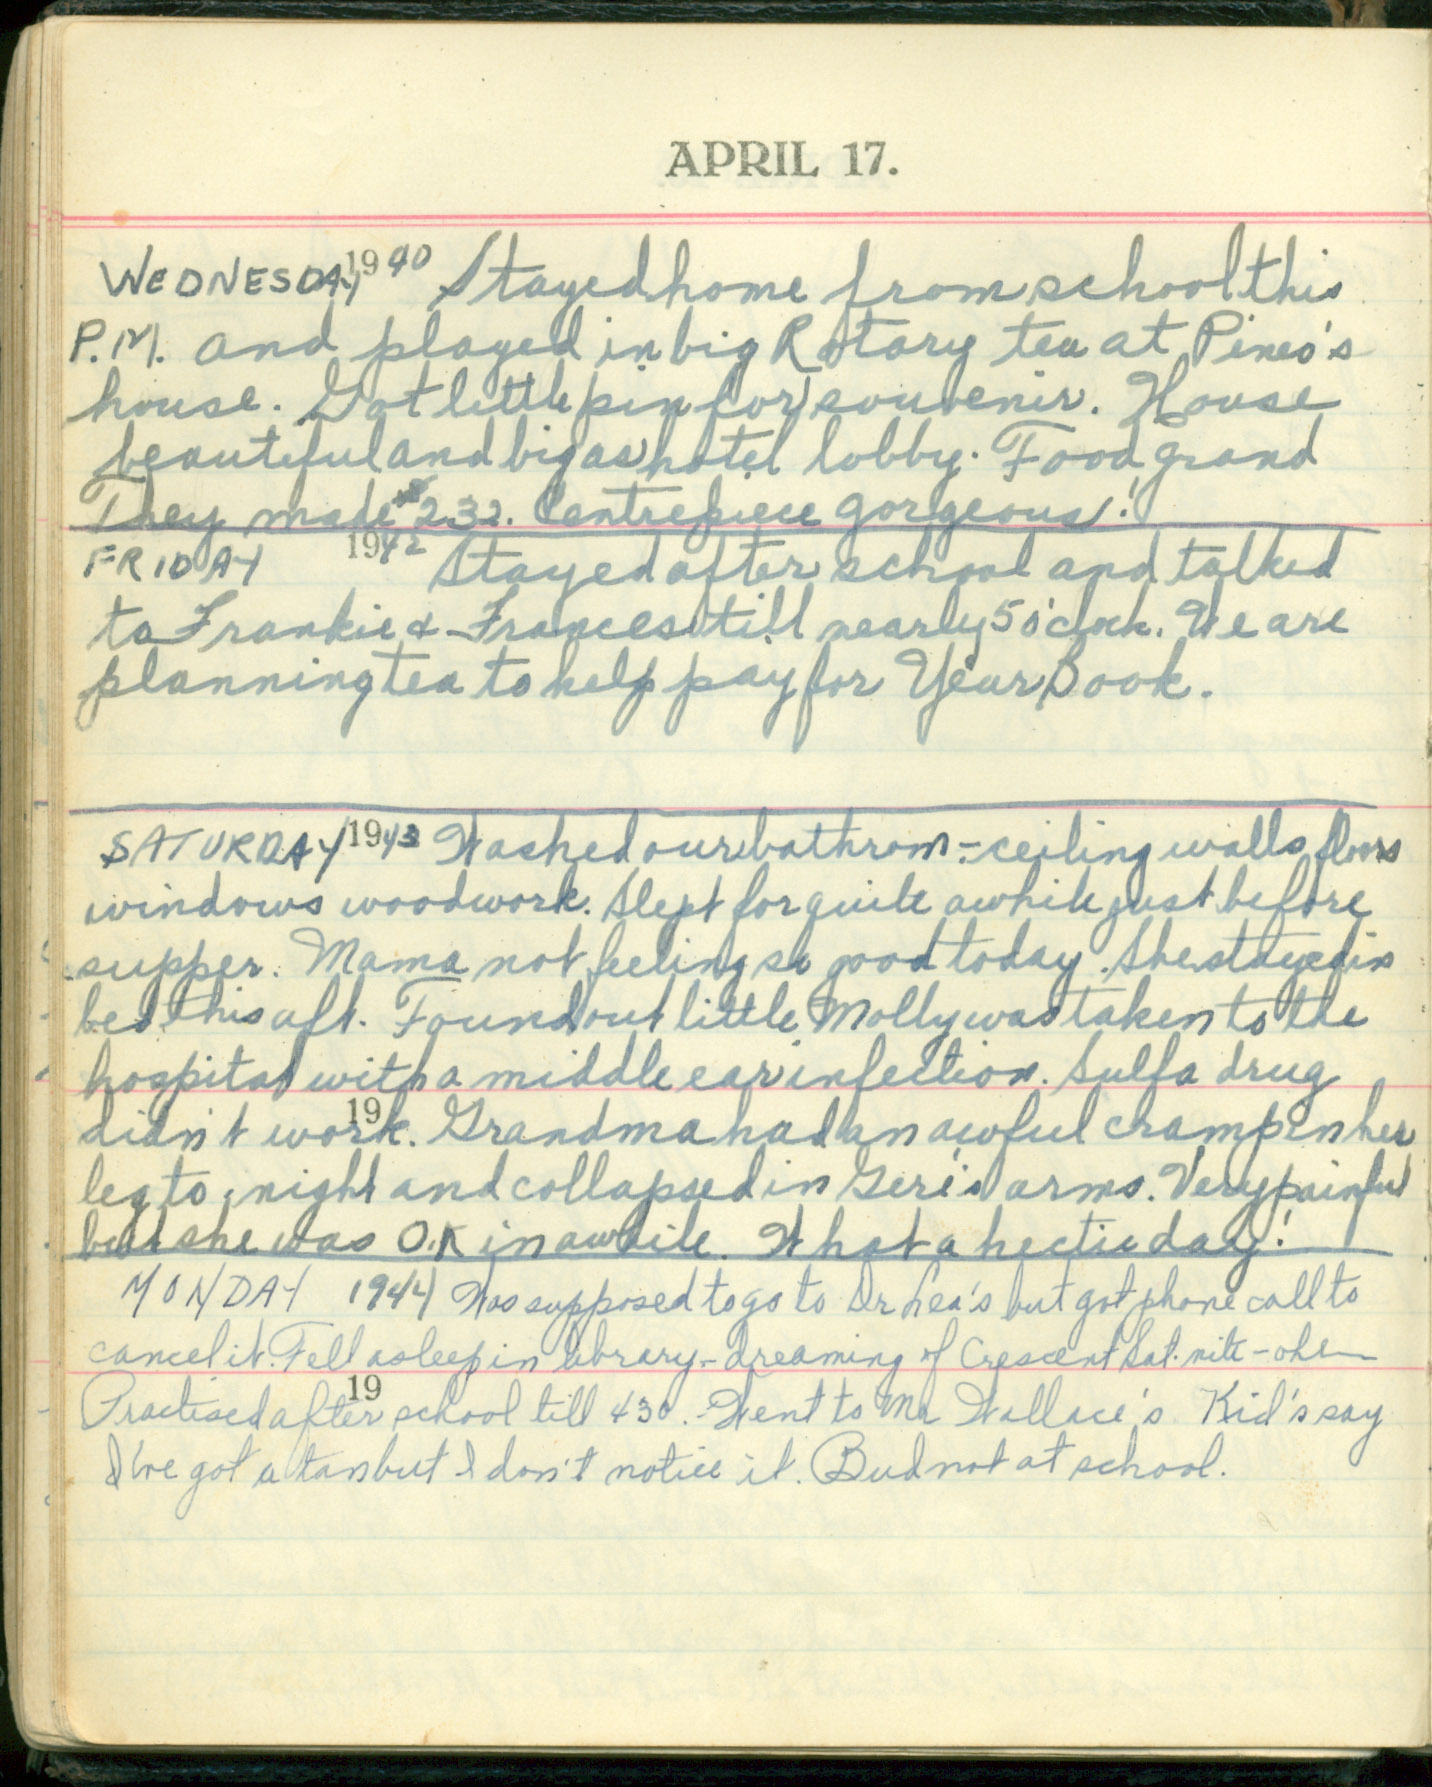 APRIL 17.
WEDNESDAY 1940 Stayed home from school this
P.M. and played in big Rotary tea at Pineo's
house. Got little pin for souvenir. House
beautiful and big as hotel lobby. Food grand
They made $232. Centrepiece gorgeous!
FRIDAY 1942 Stayed after school and talked
to Frankie & Frances till nearly 5 o'clock. We are
planning tea to help pay for Year Book.
SATURDAY 1943 Washed our bathrom - ceiling walls floors
windows woodwork. Slept for quite awhile just before
supper. Mama not feeling so good today. She stayed in
bed this aft. Found out little Molly was taken to the
hospital with a middle ear infection. Sulfa drug
19
didn't work. Grandma had an awful cramp in her
leg to night and collapsed in Geri's arms. Very painful
but she was O.K in awhile. What a hectic day!
MONDAY 1944 Was supposed to go to Dr Lea's but got phone call to
cancel it. Fell asleep in library - dreaming of Crescent Sat. nite - oh
19
Practised after school till 430. Went to Mr Wallace's. Kid's say
I've got a tan but I don't notice it. Bud not at school.